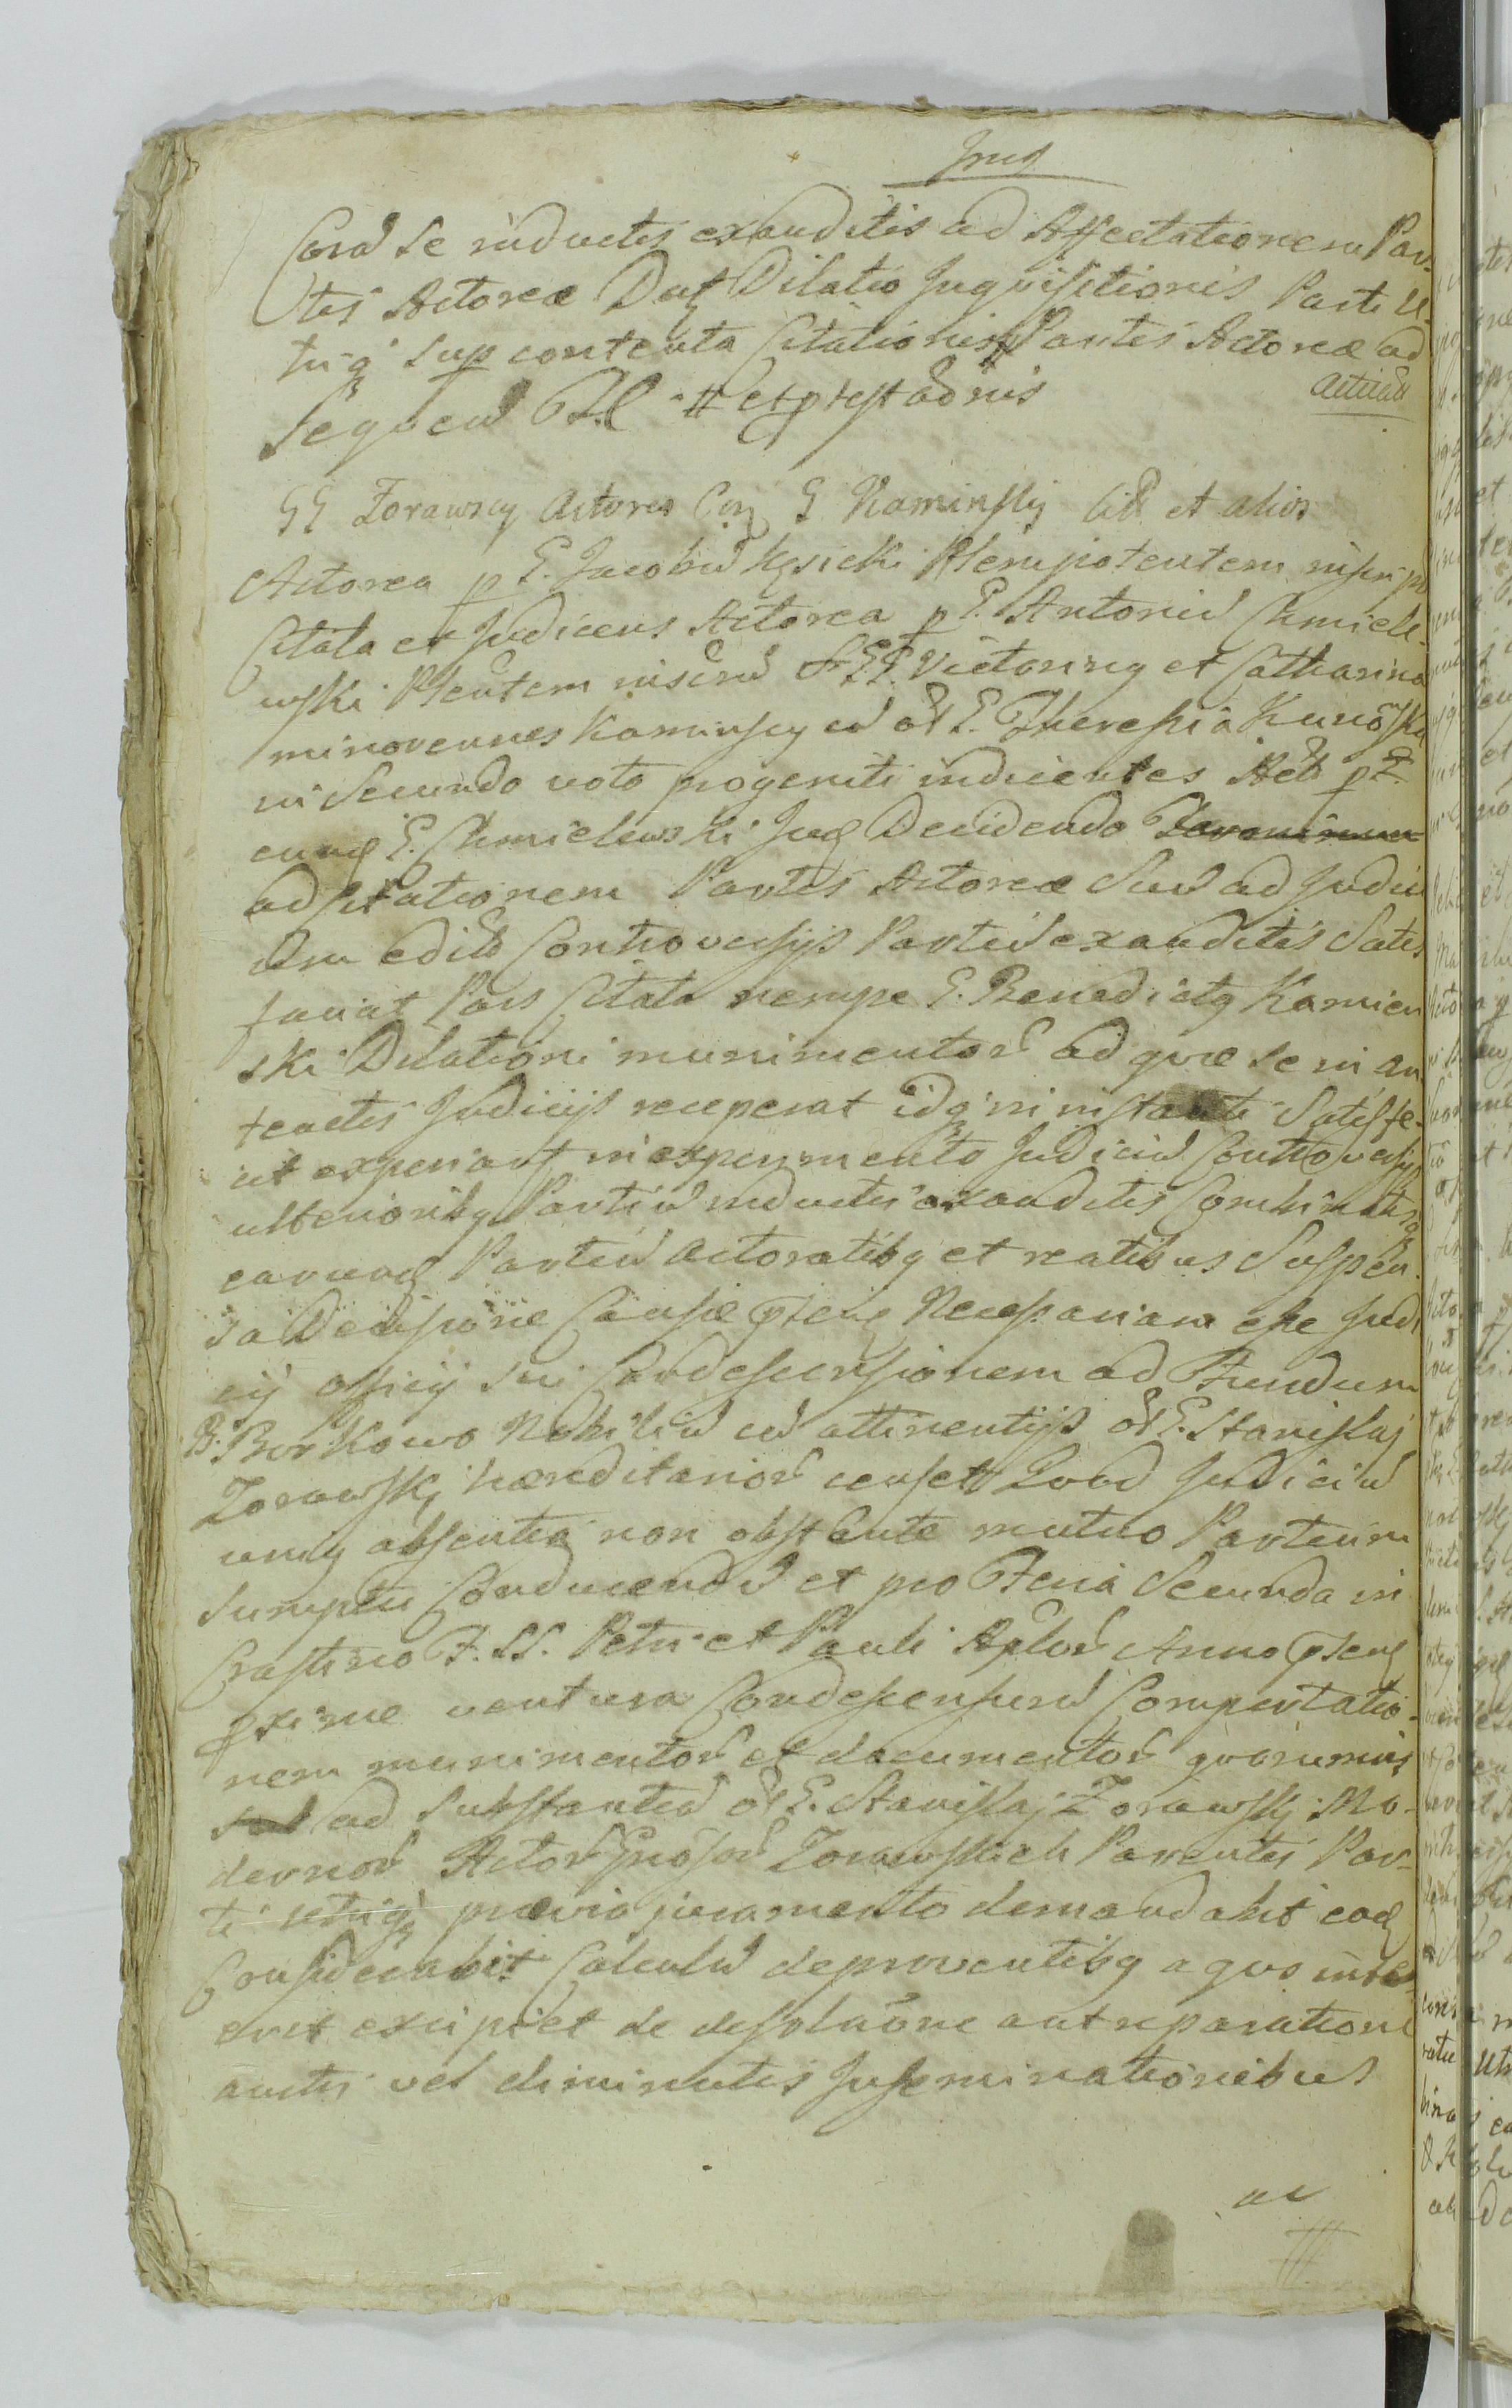 Jud
Corā Se inductis exauditis ad Affectationem Par-
tis Actoreæ Dat Dilatio Inquisitionis Parti U-
triq sup contenta Citationis Partis Actoreæ ad
Sequen
GG Zorawscy Actores Con G Kaminskij Cit et alios
Actorea p G. Jacobū Kęsicki Plenipotentem
Citata et Judicens Actorea p G. Antoniū Chmiele-
wski Plentem GG. Victoring et Catharina
minorennes Kaminscy ol G. Theresia
in Secundo voto progeniti indicentes p
eund G. Chmielewski Jud Decidendo
ad Citationem Partis Actoreæ Suā ad Judiciū
Controversijs Partiū exauditis Satis
faciat Pars Citata nempe G. Benedictg Kamien
ski Dilationi munimentor ad quæ se in an
teactis Judicijs receperat idq in instanti Satisfe-
cit in experimento Judiciū Controversijs
ulterioribg Partiū inductis exauditis Combinatisq
earund Partiū Actoratibg et reatibus Suspen-
sa Decisione Causæ Necessariam esse Judi
cij officij Sui Condescensionem ad Fundum
B. Borkowo Nobiliū cū attinentijs ol G. Stanislaj
Zorawskj hæreditarior censet Quod Judiciū
unig absentia non obstante mutuo Partium
Sumptu Conducendū et pro Feria Secunda in
Crastino F. SS. Petri et Pauli Aplor Anno
pxime ventura Condescensurū Comportatio-
nem munimentor et documentor quorumvis
ad Substantiā ol G. Stanislaj Zorawskj Mo-
dernor Actor Zorawskich Parentis Par-
ti utriq prævio juramento demandabit eaq
Considerabit Calculū de proventibg a quo
erit excipiet de desolatione aut reparatione
auctis vel diminutis Inseminationibus
ac